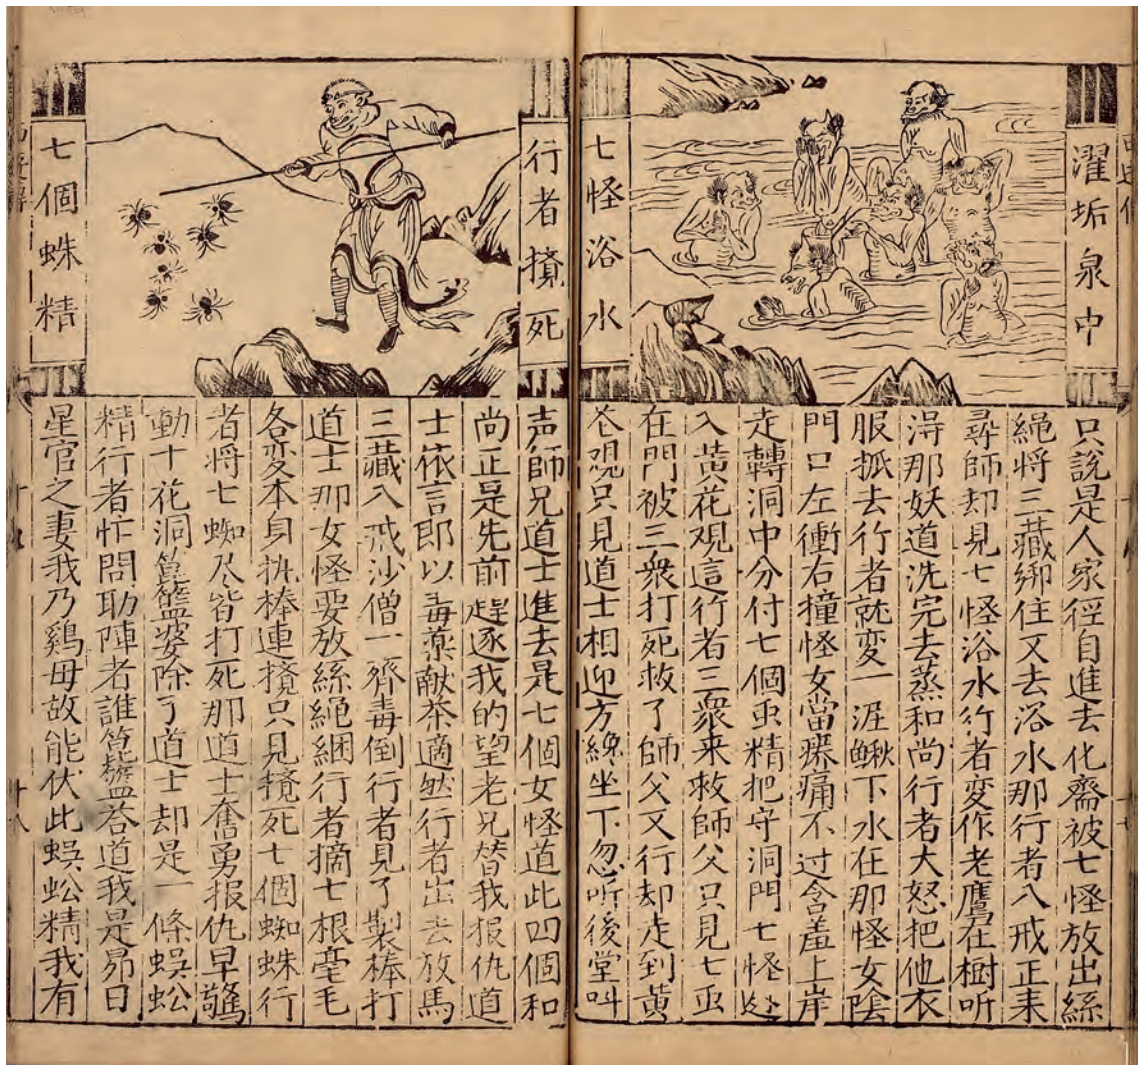 濯垢泉中
七怪浴水
只說是人家徑自進去化齋被七怪放出絲
繩將三藏綁住又去浴水那行者八戒正来
尋師却見七怪浴水行者变作老鷹在樹听
淂那妖道洗完去蒸和尚行者大怒把他衣
服抓去行者就変一泥鰍下水在那怪女陰
門口左衝右撞怪女當癢痛不过含羞上岸
走轉洞中分付七個虫精把守洞門七怪迯
入黃花观這行者三衆来救師父只見七虫
在門被三衆打死救了師父又行却走到黃
花观只見道士相迎方纔坐下忽听後堂叫
行者攪死
七個蛛精
声師兄道士進去是七個女怪道此四個和
尚正是先前趕逐我的望老兄替我报仇道
士依言即以毒薬献茶適然行者出去放馬
三藏八戒沙僧一齊毒倒行者見了掣棒打
道士那女怪要放絲繩綑行者摘七根毫毛
各変本身执棒連攪只見攪死七個蜘蛛行
者将七蜘尽皆打死那道士奮勇报仇早驚
動十花洞篦籃婆除了道士却是一條蜈蚣
精行者忙問助陣者誰篦籃答道我是昴日
星官之妻我乃鷄母故能伏此蜈蚣精我有